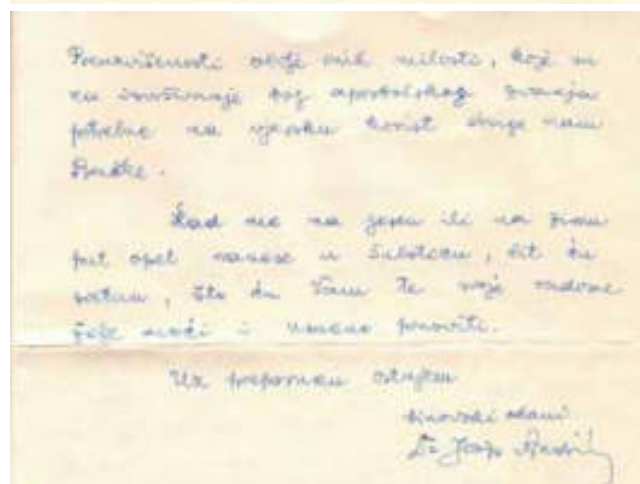 Preuzvišenosti obilje svih milosti, koje su
za izvršivanje tog apostolskog zvanja
potrebne na vjersku korist drage nam
Bačke.
Kad me na jesen ili na zimu
put opet nanese u Suboticu, bit ću
sretan, što ću Vam te moje radosne
želje moći i usmeno ponoviti.
Uz preporuku ostajem
sinovski odani
Dr Josip Andrić